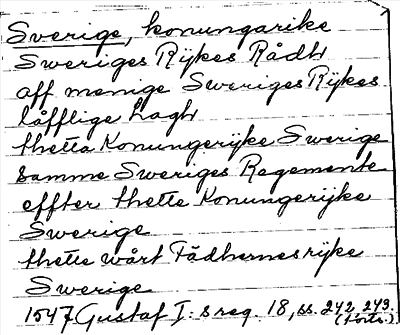 Sverige, konungarike
Sweriges Rijkes Rådh
aff menige Sweriges Rijkes
låfflige Lagh
thetta Konungerijke Swerige
samme Sweriges Regemente
effter thette Konungerijke
Swerige
thette wårt Fädhernesrijke
Swerige
1547 Gustaf I:s reg. 18, ss. 242, 243.
(forts.)